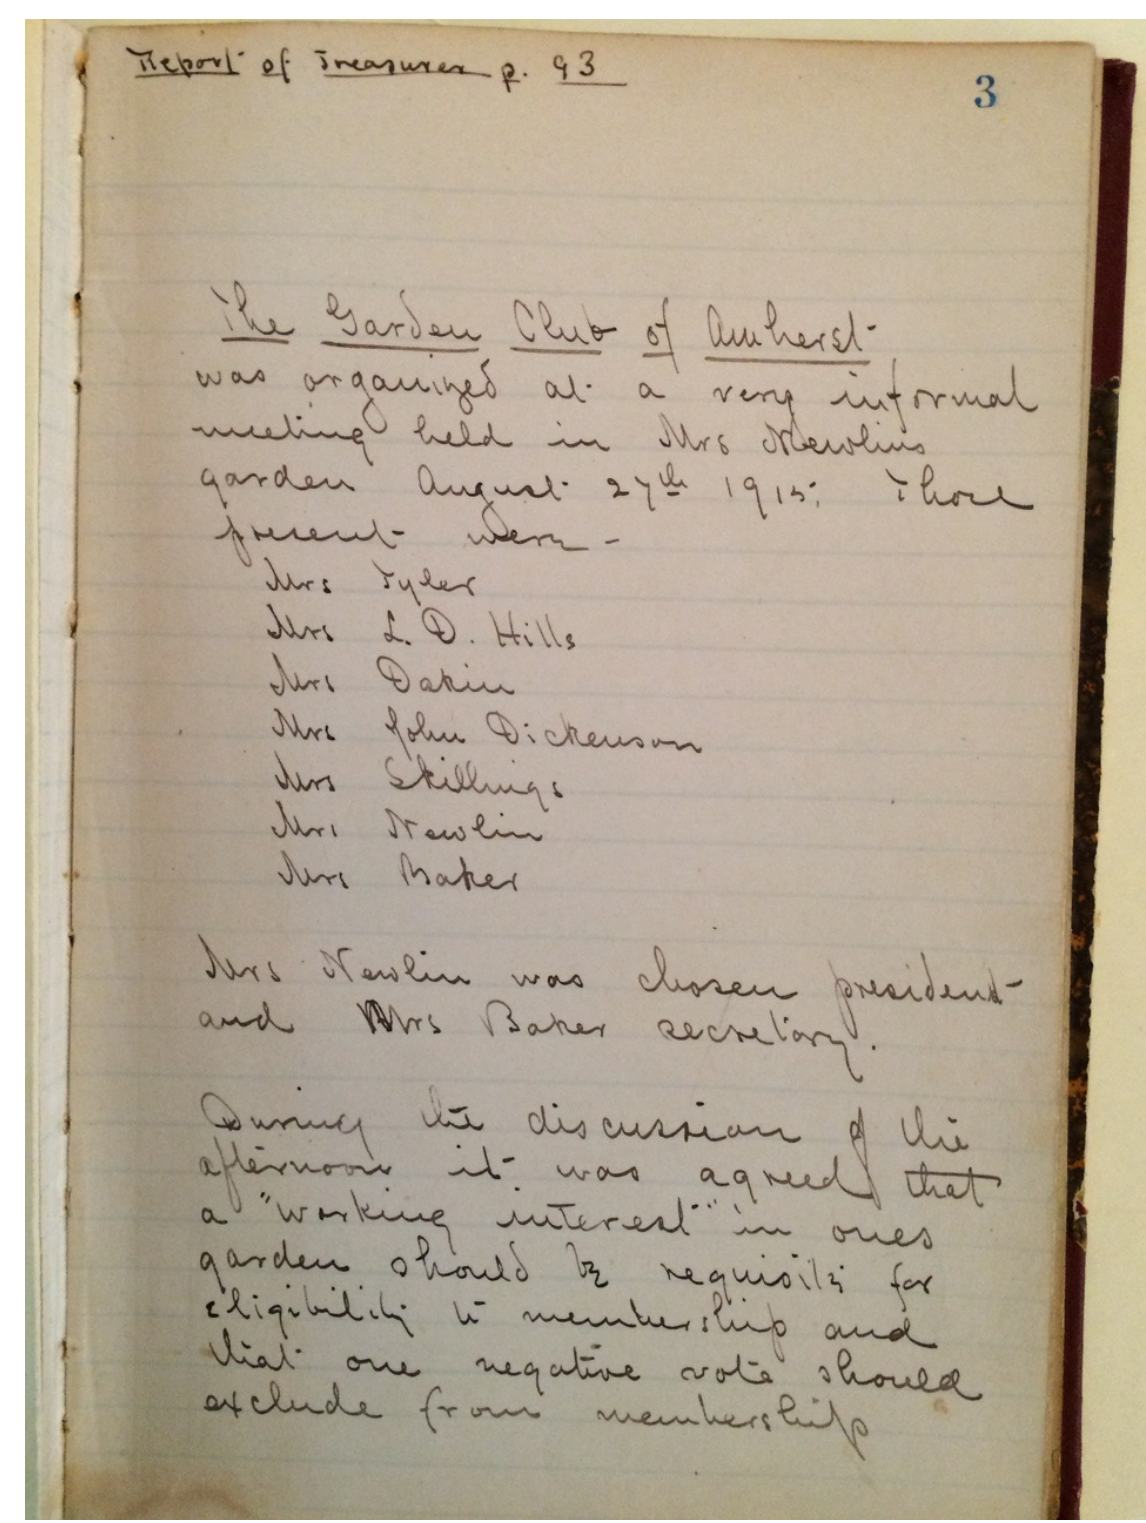 Report of Treasurer p. 93
3
The Garden Club of Amherst
was organized at a very informal
meeting held in Mrs Newlins
garden August 27th 1915. Those
present were -
Mrs Tyler
Mrs L. D. Hills
Mrs Dakin
Mrs John Dickenson
Mrs Skillings
Mrs Newlin
Mrs Baker
Mrs Newlin was chosen president
and Mrs Baker secretary.
During the discussion of the
afternoon it was agreed that
a "working interest" in ones
garden should be requisite for
eligibility to membership and
that one negative vote should
exclude from membership